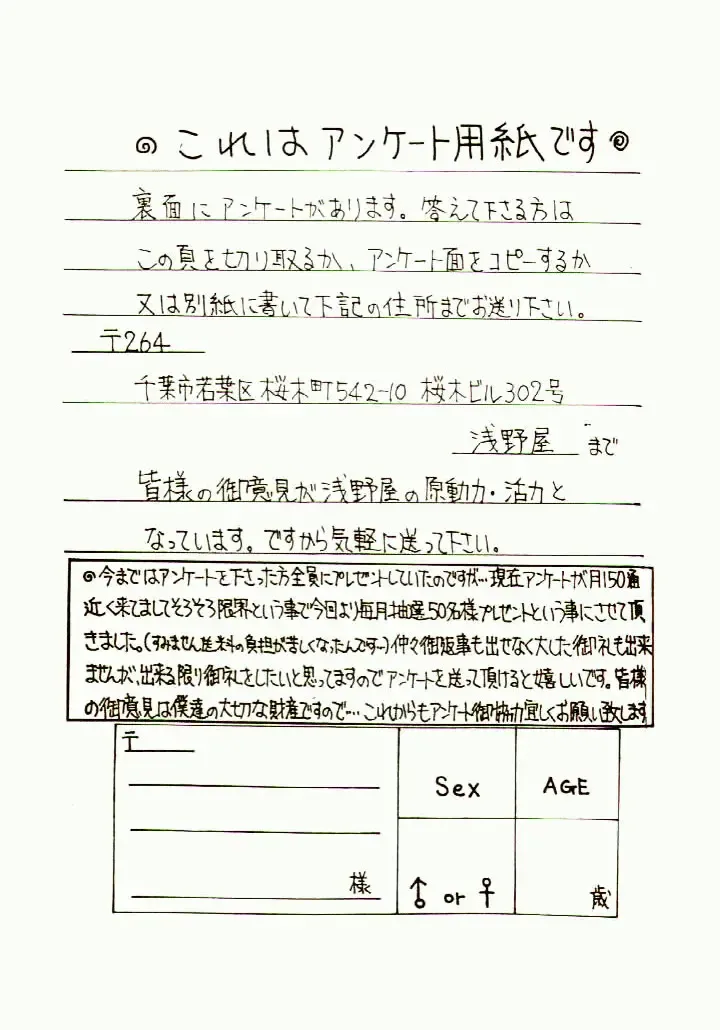 これはアンケート用紙です
裏面にアンケートがあります。答えて下さる方は
この頁を切り取るか、アンケート面をコピーするか
又は別紙に書いて下記の住所までお送り下さい。
〒264
千葉市若葉区桜木町542-10 桜木ビル302号
浅野屋 まで
皆様の御意見が浅野屋の原動力・活力と
なっています。ですから気軽に送って下さい。
◎今まではアンケートを下さった方全員にプレゼントしていたのですが…現在アンケートが月150通
近く来てましてそろそろ限界という事で今日より毎月抽選50名様プレゼントという事にさせて頂
きました。(すみません送料の負担が苦しくなったんです~)仲々御返事も出せなく大した御礼も出来
ませんが、出来る限り御礼をしたいと思ってますのでアンケートを送って頂けると嬉しいです。皆様
の御意見は僕達の大切な財産ですので…これからもアンケート御協力宜しくお願い致します
〒
Sex AGE
様 ♂ or ♀ 歳